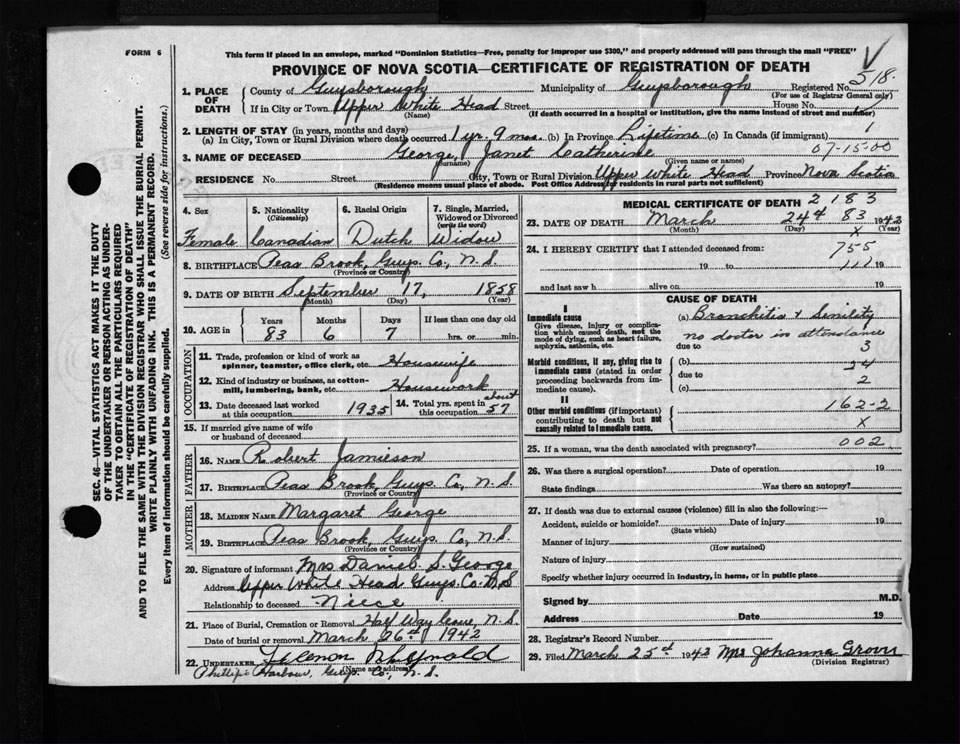 FORM 6
This form if placed in an envelope, marked "Dominion Statistics—Free, penalty for improper use $300," and properly addressed will pass through the mail "FREE"
PROVINCE OF NOVA SCOTIA—CERTIFICATE OF REGISTRATION OF DEATH
SEC. 46—VITAL STATISTICS ACT MAKES IT THE DUTY
OF THE UNDERTAKER OR PERSON ACTING AS UNDER-
TAKER TO OBTAIN ALL THE PARTICULARS REQUIRED
IN THE "CERTIFICATE OF REGISTRATION OF DEATH"
AND TO FILE THE SAME WITH THE DIVISION REGISTRAR WHO SHALL ISSUE THE BURIAL PERMIT.
WRITE PLAINLY WITH UNFADING INK. THIS IS A PERMANENT RECORD.
Every item of information should be carefully supplied. (See reverse side for instructions.)
1. PLACE OF DEATH County of Guysborough Municipality of Guysborough Registered No. 518.
(For use of Registrar General only)
If in City or Town Upper White Head Street House No.
(Name) (If death occurred in a hospital or institution, give the name instead of street and number)
2. LENGTH OF STAY (in years, months and days)
(a) In City, Town or Rural Division where death occurred 1 yr. 9 mos. (b) In Province Lifetime (c) In Canada (if immigrant) 1
07-15-00
3. NAME OF DECEASED George, Janet Catherine
(Surname) (Given name or names)
RESIDENCE No. Street City, Town or Rural Division Upper White Head Province Nova Scotia
(Residence means usual place of abode. Post Office Address for residents in rural parts not sufficient)
4. Sex
Female
5. Nationality
(Citizenship)
Canadian
6. Racial Origin
Dutch
7. Single, Married,
Widowed or Divorced
(write the word)
Widow
8. BIRTHPLACE Peas Brook, Guys. Co., N.S.
(Province or Country)
9. DATE OF BIRTH September 17, 1858
(Month) (Day) (Year)
10. AGE in Years Months Days If less than one day old
83 6 7 hrs. or min.
OCCUPATION
11. Trade, profession or kind of work as
spinner, teamster, office clerk, etc. Housewife
12. Kind of industry or business, as cotton-
mill, lumbering, bank, etc. Housework
13. Date deceased last worked
at this occupation 1935
14. Total yrs. spent in
this occupation about 57
15. If married give name of wife
or husband of deceased
FATHER
16. NAME Robert Jamieson
17. BIRTHPLACE Peas Brook, Guys. Co., N.S.
(Province or Country)
MOTHER
18. MAIDEN NAME Margaret George
19. BIRTHPLACE Peas Brook, Guys. Co., N.S.
(Province or Country)
20. Signature of informant Mrs Daniel S. George
Address Upper White Head Guys. Co. N.S
Relationship to deceased Niece
21. Place of Burial, Cremation or Removal Half Way Cove, N.S.
Date of burial or removal March 26th, 1942
22. UNDERTAKER
(Name and address)
Phillips Harbour, Guys. Co., N.S.
MEDICAL CERTIFICATE OF DEATH 2183
23. DATE OF DEATH March 24th 83 1942
(Month) (Day) (Year)
X
24. I HEREBY CERTIFY that I attended deceased from:
755
19 to 19
and last saw h alive on 19
CAUSE OF DEATH
I
Immediate cause
Give disease, injury or complica-
tion which caused death, not the
mode of dying, such as heart failure,
asphyxia, asthenia, etc.
(a) Bronchitis & Senility
no doctor in attendance
due to 3
Morbid conditions, if any, giving rise to
immediate cause (stated in order
proceeding backwards from im-
mediate cause).
(b)
due to
(c) 2
II
Other morbid conditions (if important)
contributing to death but not
causally related to immediate cause.
162-2
X
25. If a woman, was the death associated with pregnancy? 002
26. Was there a surgical operation? Date of operation 19
State findings Was there an autopsy?
27. If death was due to external causes (violence) fill in also the following:—
Accident, suicide or homicide? Date of injury 19
(State which)
Manner of injury
(How sustained)
Nature of injury
Specify whether injury occurred in industry, in home, or in public place
Signed by M.D.
Address Date 19
28. Registrar's Record Number
29. Filed March 25th 1942 Mrs Johanna Grover
(Division Registrar)